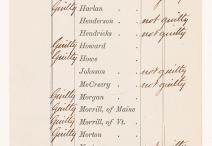 Guilty Harlan . .
Henderson . . not guilty
Hendricks . . not guilty
Guilty Howard . .
Guilty Howe . .
Johnson . . not guilty
McCreery . . not guilty
Guilty Morgan . .
Guilty Morrill, of Maine
Guilty Morrill, of Vt. .
Guilty Morton . .